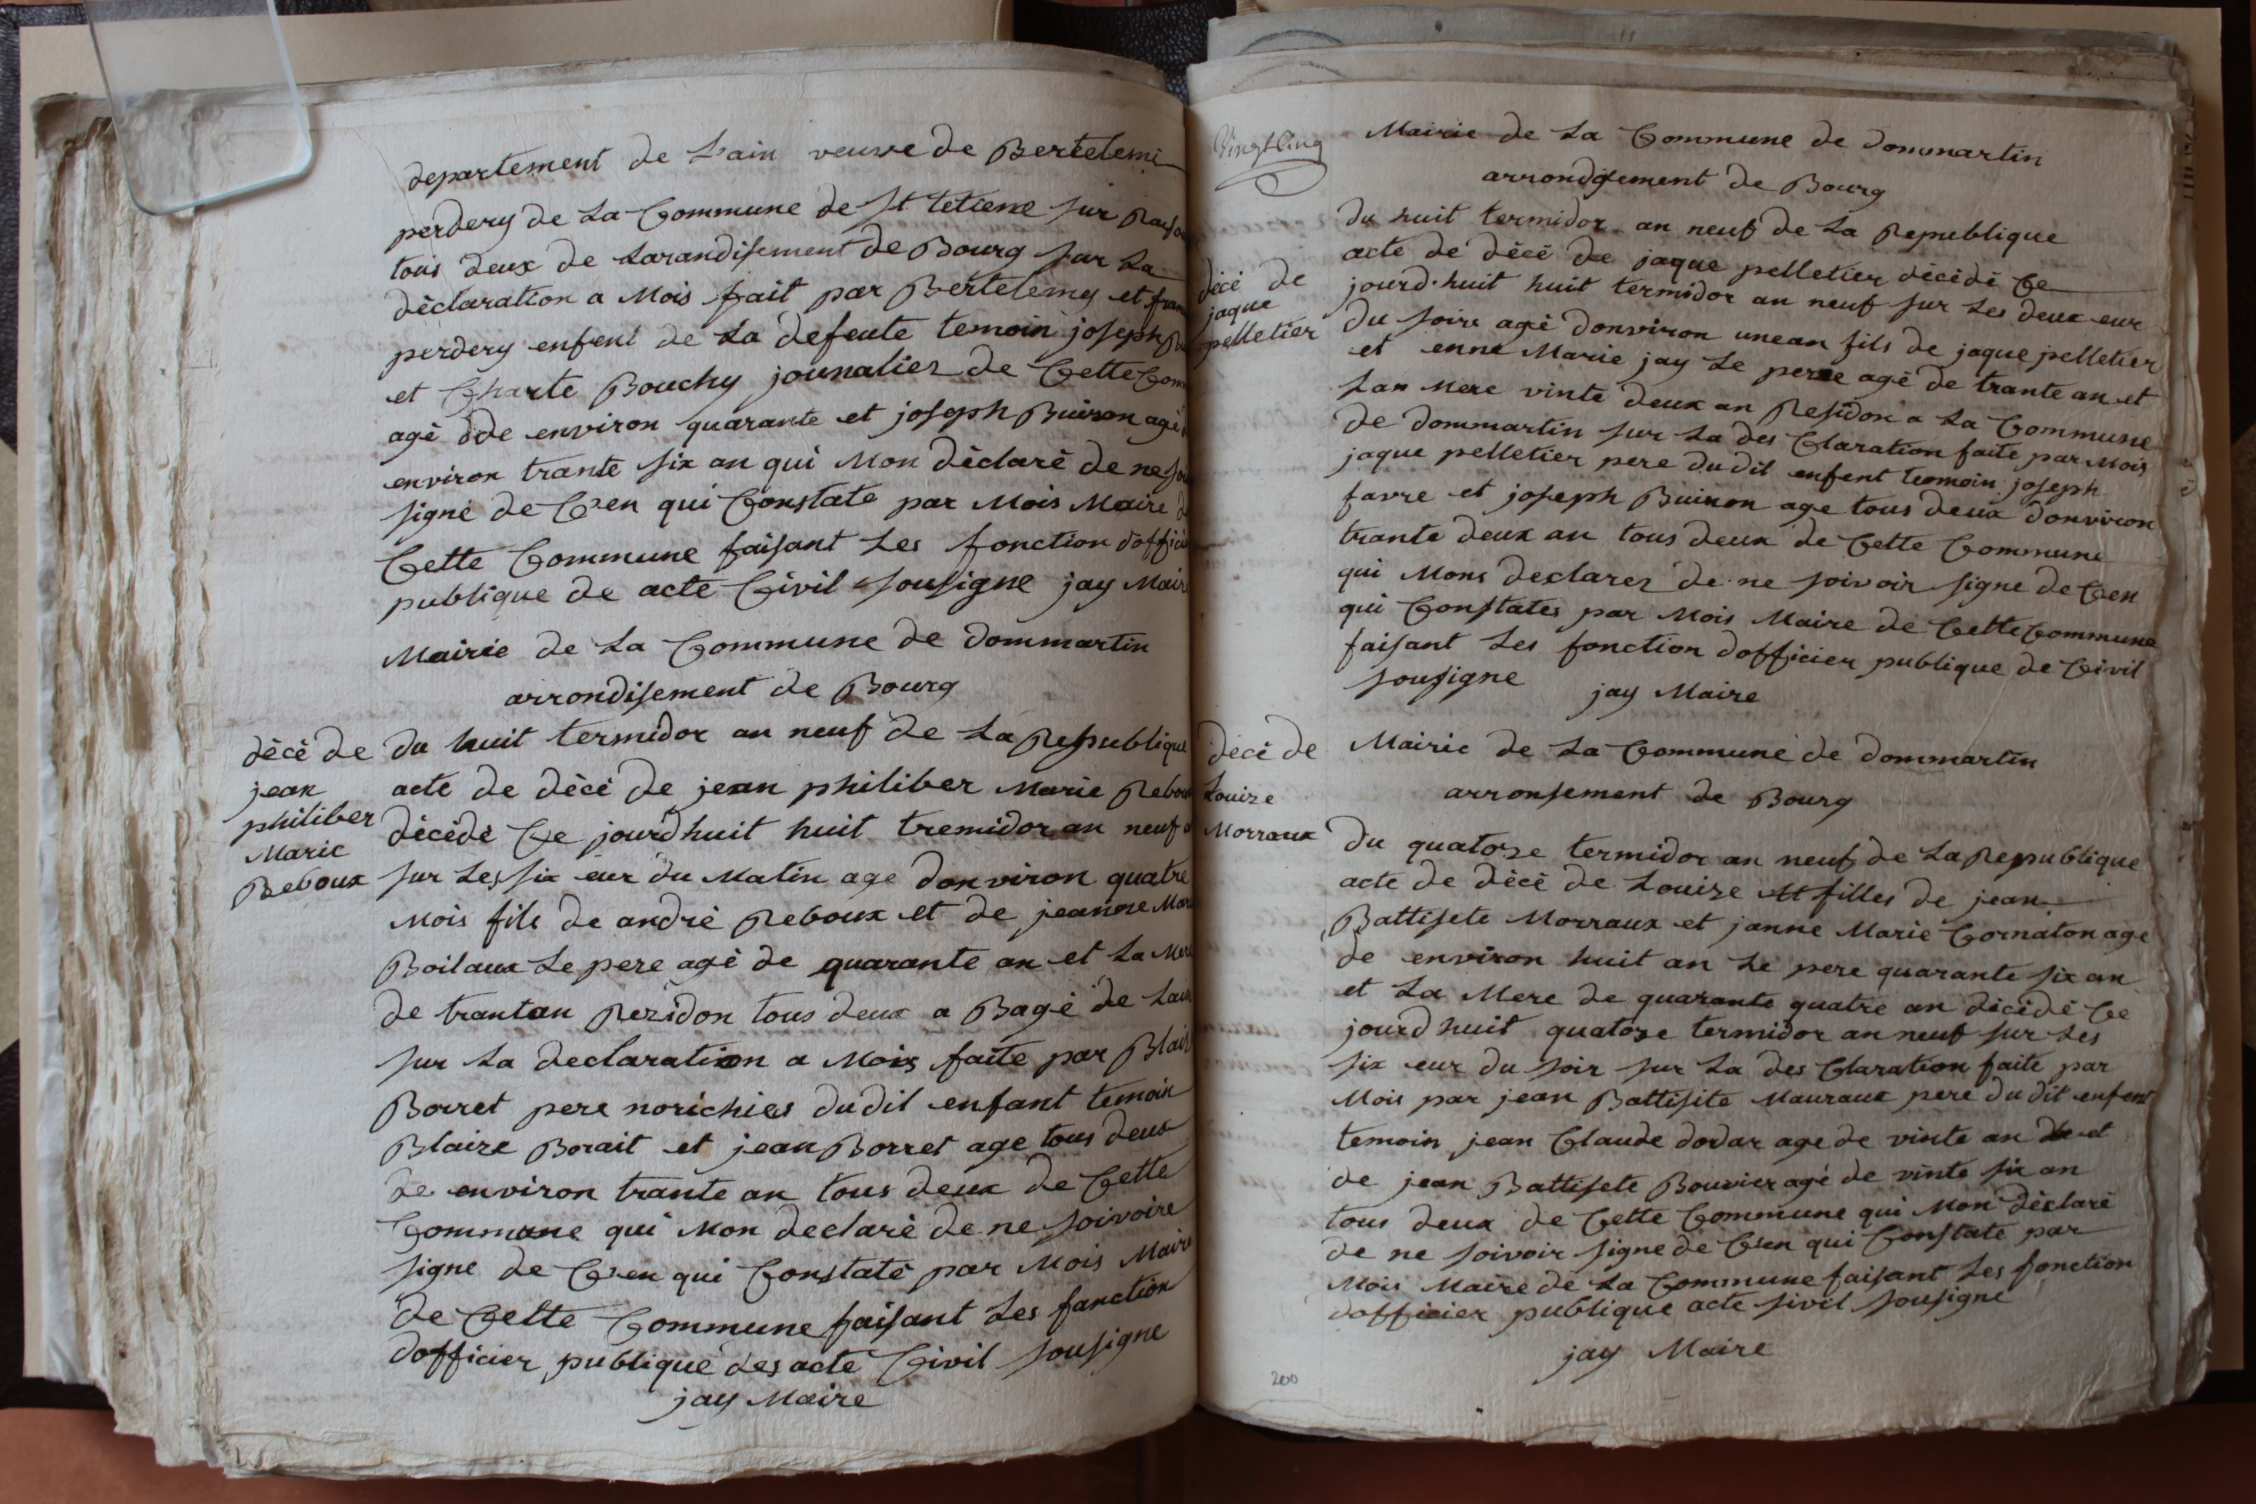 departement de L'ain veuve de Bertelemi
perdery de La Commune de st tetiene sur
tous deux de Larandisement de Bourg sur La
dèclaration a Mois fait par Bertelemy et
perdery enfent de La defente temoin joseph
et Charle Bouchy jounalier de Cette
agè dde environ quarante et joseph Buiron agè
environ trante six an qui Mon dèclarè de ne
signè de C'en qui Constate par Mois Maire
Cette Commune faisant Les fonction
publique de acte Civil sousigne jay Maire
Mairie de La Commune de dommartin
arrondisement de Bourg
dècè de
jean
philiber
Marie
Reboux
du huit termidor an neuf de La Republique
acte de dècè de jean philiber Marie Reboux
dècèdè Ce jourdhuit huit tremidor an neuf
sur Les six eur du Matin age donviron quatre
Mois fils de andrè Reboux et de jeanne
Boilaux Le pere agè de quarante an et La Mere
de trantan Rezidon tous deux a Bagè de
sur La declaration a Mois faite par
Borret pere norichier dudit enfant temoin
Blaize Borait et jean Borret age tous deux
de environ trante an tous deux de Cette
Commune qui Mon declarè de ne soivoire
signe de C'en qui Constatè par Mois Maire
de Cette Commune faisant Les fanction
dofficier publique des acte Civil sousigne
jay Maire
Vingt Cinq
Mairie de La Commune de dommartin
arrondisement de Bourg
dècè de
jaque
pelletier
du huit termidor an neuf de La Republique
acte de dècè de jaque pelletier dècèdè Ce
jourd'huit huit termidor an neuf sur Les deux eur
du soire agè donviron unean fils de jaque pelletier
et enne Marie jay Le pere agè de trante an et
San Mere vinte deux an Residon a La Commune
de dommartin sur La des Claration faite par Mois
jaque pelletier pere dudit enfent temoin joseph
favre et joseph Buiron age tous deux donviron
trante deux an tous deux de Cette Commune
qui Mons declarez de ne soivoir signe de C'en
qui Constates par Mois Maire de Cette Commune
faisant Les fonction dofficier publique de Civil
sousigne jay Maire
dècè de
Louize
Morraux
Mairie de La Commune de dommartin
arronsement de Bourg
du quatoze termidor an neuf de La Republique
acte de dècè de Louize filles de jean
Battisete Morraux et janne Marie Cornaton age
de environ huit an Le pere quarante six an
et La Mere de quarante quatre an dècèdè Ce
jourdhuit quatoze termidor an neuf sur Les
six eur du soir sur La des Claration faite par
Mois par jean Battisite Mauraux pere du dit enfent
temoin jean Claude dodar age de vinte an et
de jean Battisete Bouvier agè de vinte six an
tous deux de Cette Commune qui Mon dèclarè
de ne soivoir signe de C'en qui Constate par
Mois Maire de La Commune faisant Les fonction
dofficier publique acte sivil sousigne
jay Maire
200